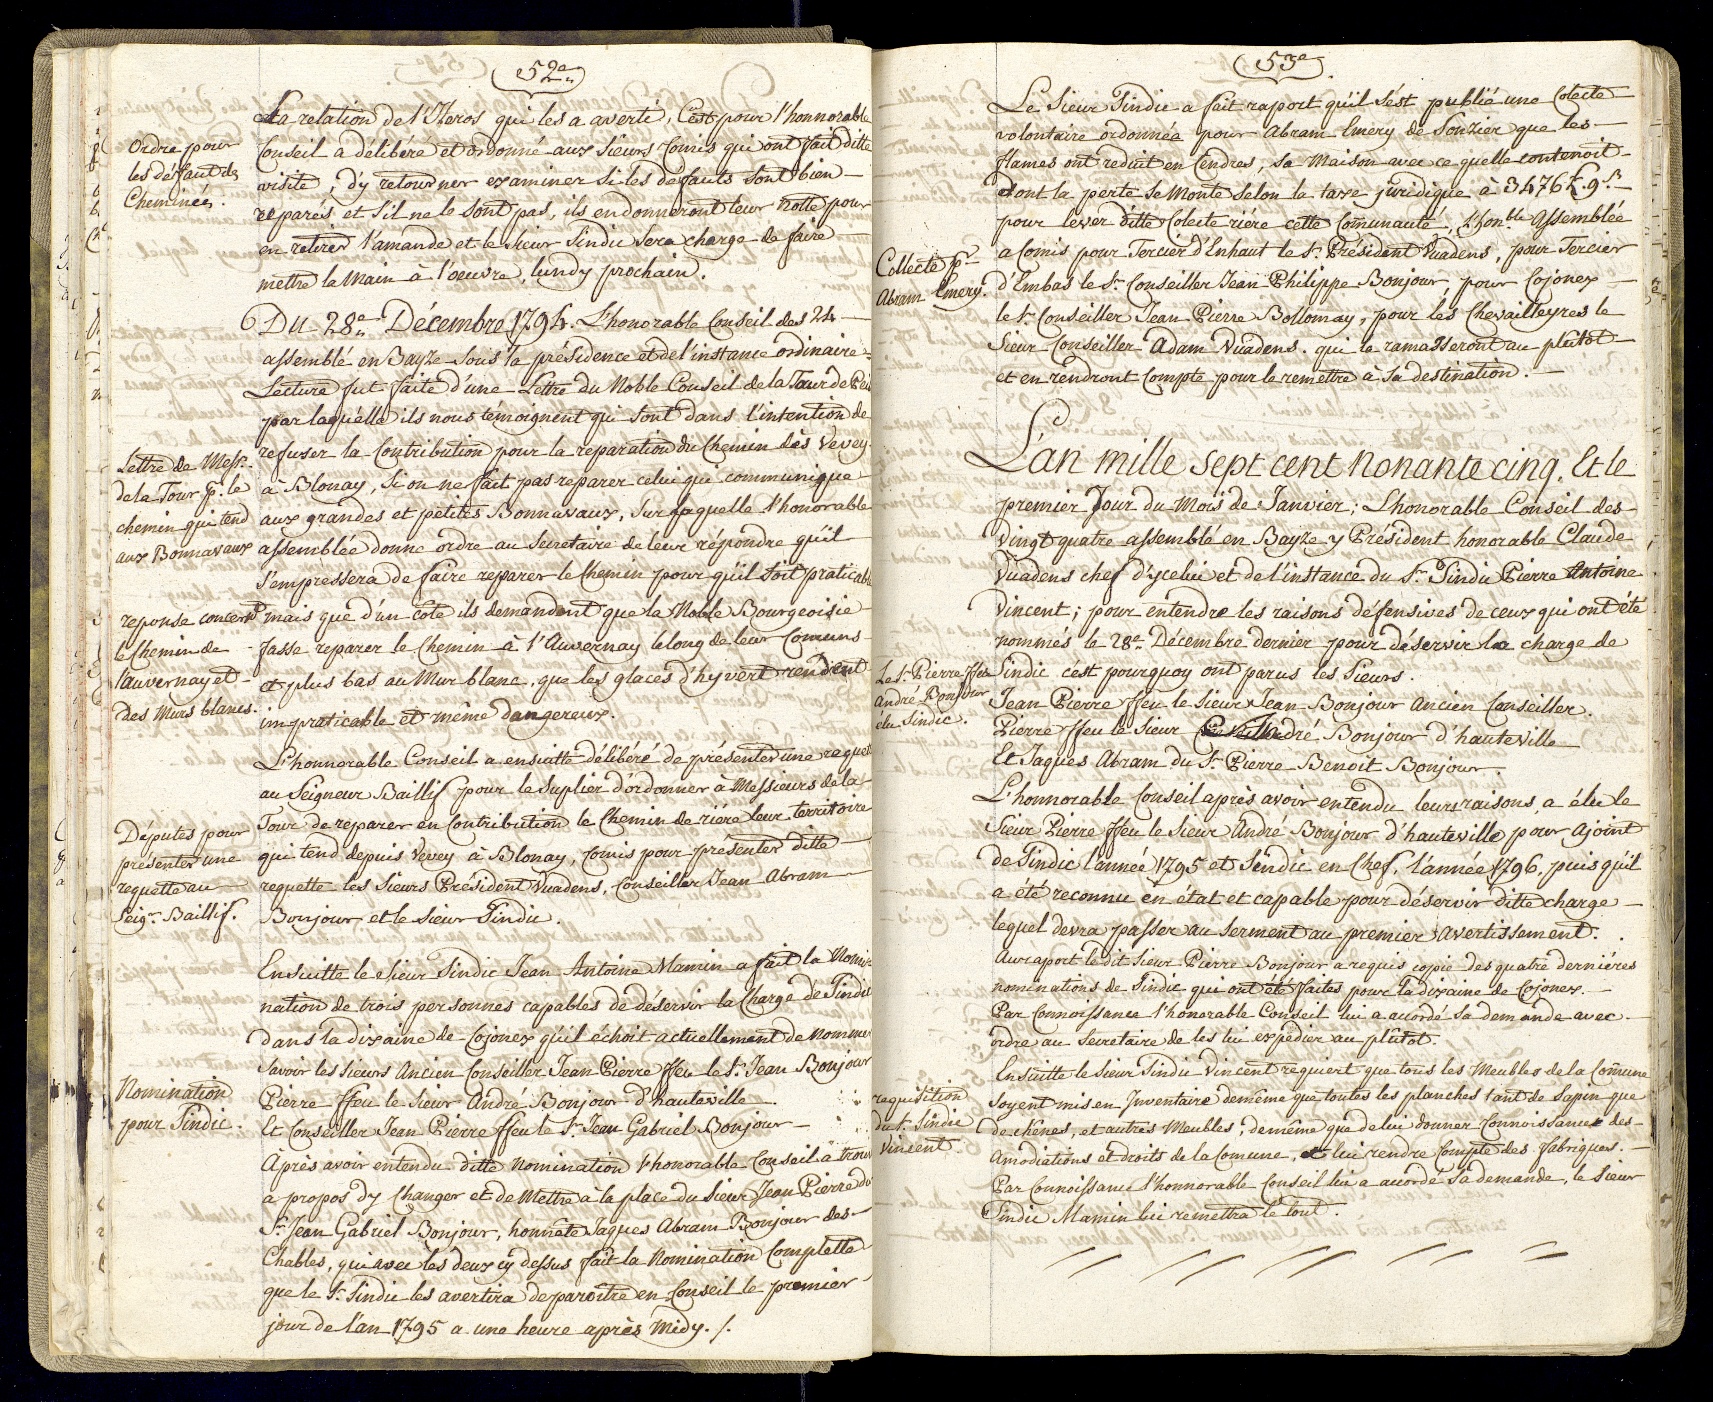 52e
La relation de l'Heros qui les a averti, C'est pour l'honnorable
Ordre pour
les défaut des
Cheminées.
Conseil a délibéré et ordonné aux Sieurs Comis qui ont fait ditte
visite, d'y retourner examiner si les défauts sont bien
réparés et s'il ne le sont pas, ils en donneront leur notte pour
en retirer l'amande et le Sieur Sindic Sera charge de faire
mettre la Main à l'oeuvre, lundy prochain.
Du 28e Décembre 1794. L'honorable Conseil des 24
assemblé en Bayze sous la présidence et de l'instance ordinaire
Lecture fut faite d'une Lettre du Noble Conseil de la Tour de Peil
par laquélle ils nous témoignent qui sont dans l'intention de
Lettre de Messr.
de la Tour pr. le
chemin qui tend
aux Bonnavaux
refuser la Contribution pour la réparation du Chemin dès Vevey
à Blonay, Si on ne fait pas reparer celui qui communique
aux grandes et petites Bonnavaux, Sur laquelle l'honorable
assemblée donne ordre au Secretaire de leur répondre qu'il
s'empressera de faire reparer le Chemin pour qu'il soit praticable
reponse concernt
le Chemin de
l'auvernay et
des Murs blancs.
mais que d'un coté ils demandent que la Noble Bourgeoisie
fasse reparer le Chemin à l'Auvernay le long de leur Comuns
et plus bas au Mur blanc, que les glaces d'hyvert rendent
impraticable et même dangereux.
L'honnorable Conseil a ensuitte délibéré de présenter une requete
au Seigneur Baillif pour le Suplier d'ordonner à Messieurs de la
Députes pour
présenter une
requette au
Seigr. Baillif.
Tour de réparer en Contribution le Chemin de riére leur territoire
qui tend depuis Vevey à Blonay, Comis pour présenter ditte
requette les Sieurs Président Vuadens, Conseiller Jean Abram
Bonjour et le Sieur Sindic.
Ensuitte le Sieur Sindic Jean Antoine Mamin a fait la Nomi-
nation de trois personnes capables de déservir la Charge de Sindic
dans la dixaine de Cojonex qu'il échoit actuellement de nommer
Savoir les Sieurs Ancien Conseiller Jean Pierre ffeu le Sr. Jean Bonjour
Nomination
pour Sindic.
Pierre ffeu le Sieur André Bonjour d'hauteville
Et Conseiller Jean Pierre ffeu le Sr. Jean Gabriel Bonjour
Après avoir entendu ditte Nomination l'honorable Conseil a trouvé
a propos d'y Changer et de Mettre à la place du Sieur Jean Pierre du
Sr. Jean Gabriel Bonjour, honnete Jaques Abram Bonjour des
Chables, qui avec les deux cy dessus fait la Nomination Complette
que le Sr. Sindic les avertira de paroitre en Conseil le premier
jour de l'an 1795 a une heure après Midy. /.
53e
Le Sieur Sindic a fait raport qu'il s'est publié une Colecte
volontaire ordonnée pour Abram Emery de Sonzier que les
flames ont reduit en Cendres, sa Maison avec ce quelle contenoit
dont la perte se Monte selon la taxe juridique à 3476 L. 9 s.
pour lever ditte Colecte riére cette Comunauté, L'honble. assemblée
Collecte pr.
Abram Emery.
a Comis pour Tercier d'Enhaut le Sr. Président Vuadens, pour Tercier
d'Embas le Sr. Conseiller Jean Philippe Bonjour, pour Cojonex
le Sr. Conseiller Jean Pierre Bollomay, pour les Chevailleyres le
Sieur Conseiller Adam Vuadens. qui le ramasseront au plûtot
et en rendront Compte pour le remettre à Sa destination.
L'an mille sept cent nonante cinq. Et le
premier Jour du Mois de Janvier; L'honorable Conseil des
Vingt quatre assemblé en Bayze y Président honorable Claude
Vuadens chef d'ycelui et de l'instance du Sr. Sindic Pierre Antoine
Vincent; pour entendre les raisons défensives de ceux qui ont été
nommés le 28e. Décembre dernier pour déservir la charge de
Le Sr. Pierre ffeu
André Bonjour
élu Sindic.
Sindic c'est pourquoy ont parus les Sieurs.
Jean Pierre ffeu le Sieur Jean Bonjour Ancien Conseiller.
Pierre ffeu le Sieur André Bonjour d'hauteville
Et Jaques Abram du Sr. Pierre Benoit Bonjour.
L'honnorable Conseil après avoir entendu leurs raisons, a élu le
Sieur Pierre ffeu le Sieur André Bonjour d'hauteville pour Ajoint
de Sindic l'année 1795 et Sindic en Chef, l'année 1796, puis qu'il
a été reconnu en état et capable pour déservir ditte charge
lequel devra passer au serment au premier avertissement.
Au raport le dit Sieur Pierre Bonjour a requis copie des quatre derniéres
nominations de Sindic qui ont été faites pour la dixaine de Cojonex.
Par Connoissance l'honorable Conseil lui a accordé Sa demande avec
ordre au Secretaire de les lui expédier au plûtot.
Ensuitte le Sieur Sindic Vincent requiert que tous les Meubles de la Comune
requisition
du Sr. Sindic
Vincent.
Soyent mis en Inventaire demême que toutes les planches tant de Sapin que
de chênes, et autres Meubles, demême que de lui donner Connoissance des
Amodiations et droits de la Comune, et lui rendre Compte des fabriques.
Par Connoissance l'honnorable Conseil lui a accordé Sa demande, le Sieur
Sindic Mamin lui remettra le tout.